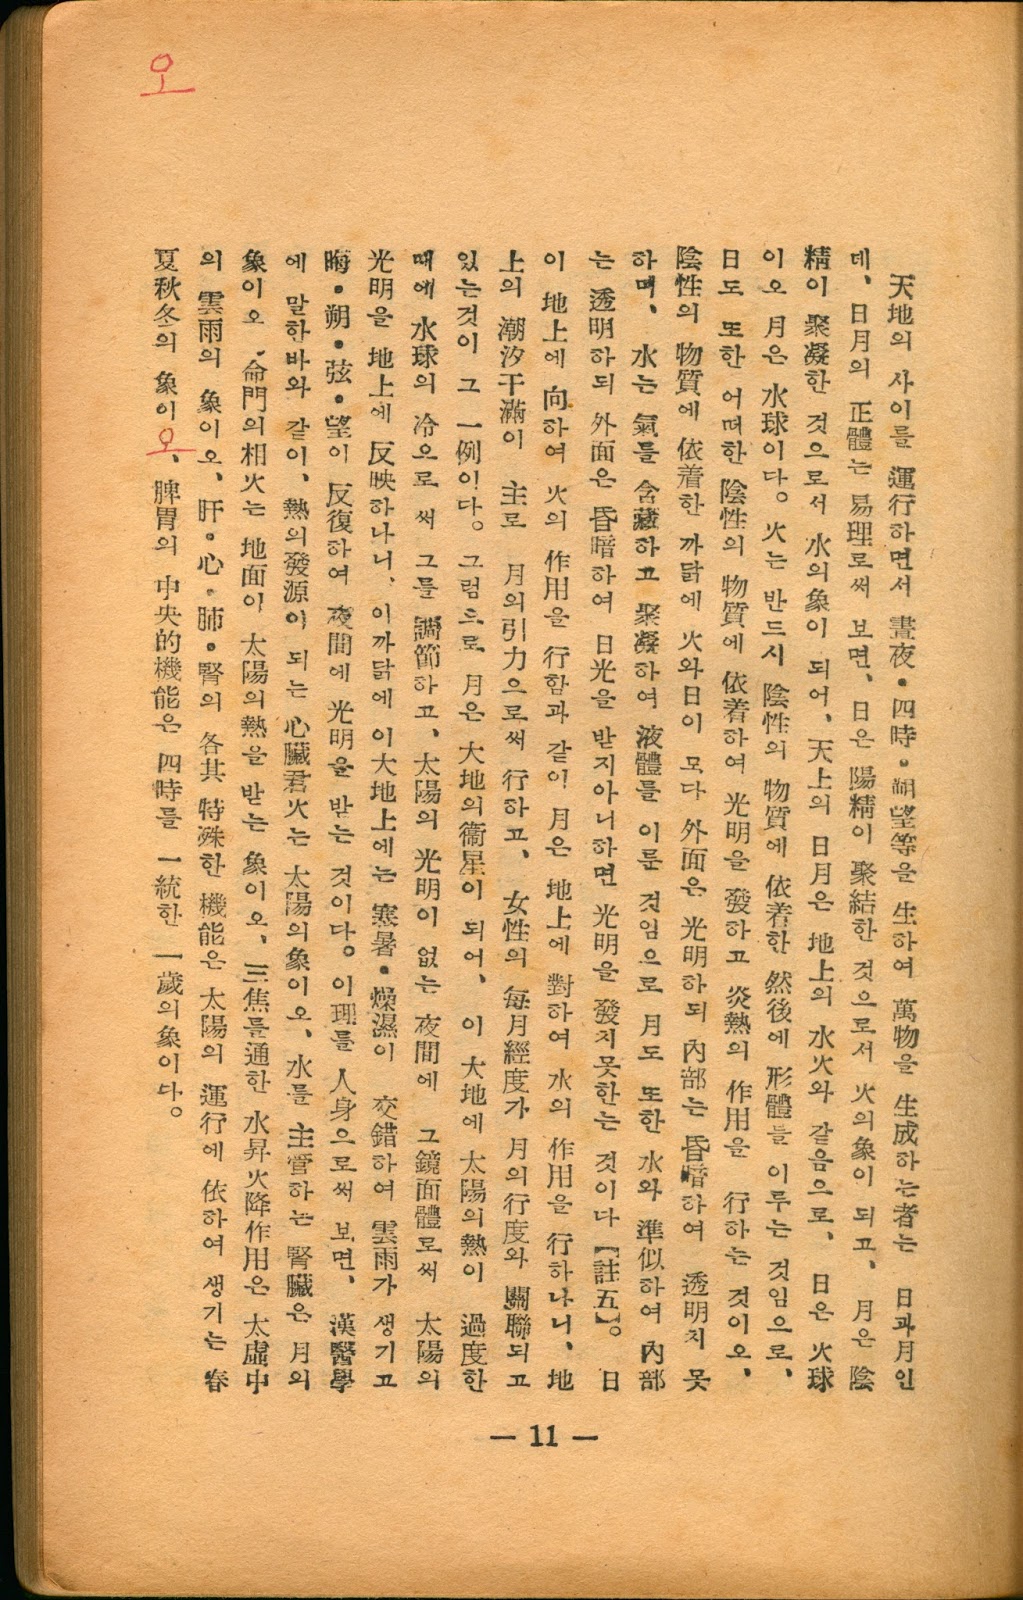 오
天地의 사이를 運行하면서 晝夜·四時·朔望等을 生하여 萬物을 生成하는者는 日과月인
데、日月의 正體는 易理로써 보면、日은 陽精이 聚結한 것으로서 火의象이 되고、月은 陰
精이 聚凝한 것으로서 水의象이 되어、天上의 日月은 地上의 水火와 같음으로、日은 火球
이오 月은 水球이다。火는 반드시 陰性의 物質에 依着한 然後에 形體를 이루는 것임으로、
日도 또한 어떠한 陰性의 物質에 依着하여 光明을 發하고 炎熱의 作用을 行하는 것이오、
陰性의 物質에 依着한 까닭에 火와日이 모다 外面은 光明하되 內部는 昏暗하여 透明치 못
하며、水는 氣를 含藏하고 聚凝하여 液體를 이룬 것임으로 月도 또한 水와 準似하여 內部
는 透明하되 外面은 昏暗하여 日光을 받지아니하면 光明을 發치못한는 것이다【註五】。日
이 地上에 向하여 火의 作用을 行함과 같이 月은 地上에 對하여 水의 作用을 行하나니、地
上의 潮汐干滿이 主로 月의引力으로써 行하고、女性의 每月經度가 月의行度와 關聯되고
있는것이 그 一例이다。그럼으로 月은 大地의衞星이 되어、이 大地에 太陽의熱이 過度한
때에 水球의 冷으로 써 그를 調節하고、太陽의 光明이 없는 夜間에 그鏡面體로써 太陽의
光明을 地上에 反映하나니、이까닭에 이大地上에는 寒暑·燥濕이 交錯하여 雲雨가 생기고
晦·朔·弦·望이 反復하여 夜間에 光明을 받는 것이다。이理를 人身으로써 보면、漢醫學
에 말한바와 같이、熱의發源이 되는 心臟君火는 太陽의象이오、水를 主管하는 腎臟은 月의
象이오、命門의相火는 地面이 太陽의熱을 받는 象이오、三焦를通한 水昇火降作用은 太虛中
의 雲雨의 象이오、肝·心·肺·腎의 各其 特殊한 機能은 太陽의 運行에 依하여 생기는 春
夏秋冬의 象이오、脾胃의 中央的機能은 四時를 一統한 一歲의象이다。
— 11 —